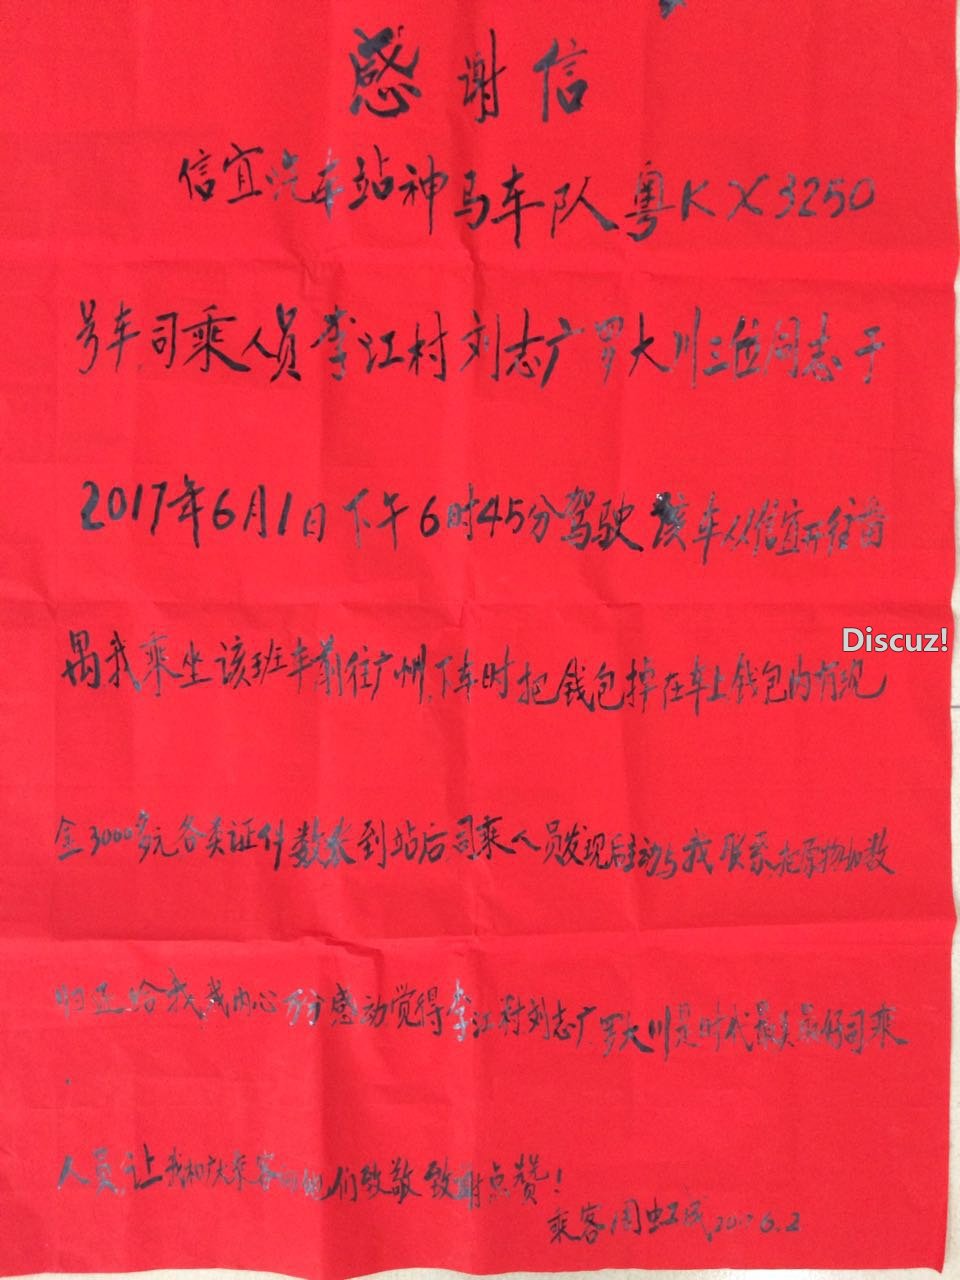 感谢信
信宜汽车站神马车队粤KX3250
号车司乘人员李江村刘志广罗大川三位同志于
2017年6月1日下午6时45分驾驶该车从信宜开往番
禺,我乘坐该班车前往广州,下车时把钱包掉在车上钱包内有现
Discuz!
金3000多元各类证件数张到站后司乘人员发现后主动与我联系把原物如数
归还给我,我内心万分感动觉得李江村刘志广罗大川是时代最美最好司乘
人员,让我和广大乘客向他们致敬致谢点赞!
乘客周虹成 6.2